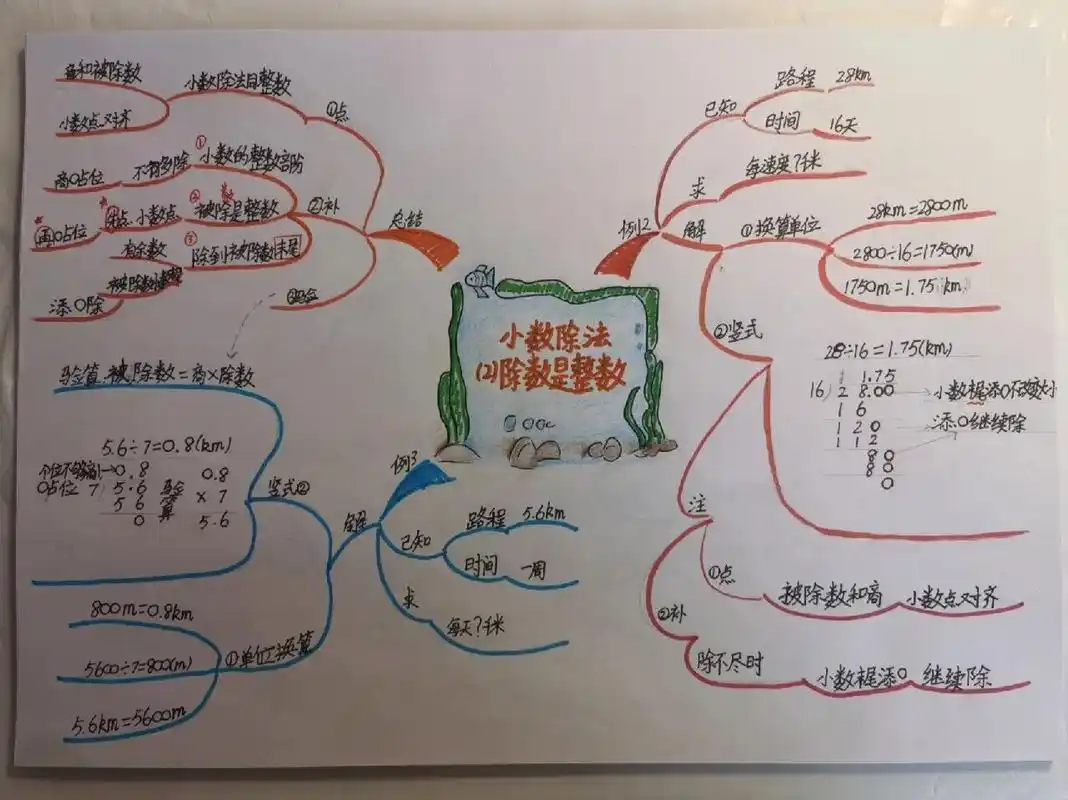 小数除法
(2)除数是整数
例2
已知
路程
28km
时间
16天
求
每速度?千米
解
①换算单位
28km=2800m
2800÷16=1750(m)
1750m=1.75km
②竖式
28÷16=1.75(km)
1.75
16)28.00
小数尾添0不改变大小
16
120
添0继续除
112
80
80
0
注
①点
被除数和商
小数点对齐
②补
除不尽时
小数尾添0
继续除
例3
已知
路程
5.6km
时间
一周
求
每天?千米
解
①单位换算
800m=0.8km
5600÷7=800(m)
5.6km=5600m
竖式②
验算.被除数=商×除数
5.6÷7=0.8(km)
0.8
0占位
7)5.6
56
0
验算
0.8
×7
5.6
总结
①点
小数除法目整数
和被除数
小数点对齐
②补
①
小数的整数部阶
不有多除
商0占位
②
被除是整数
数
点.小数点
再0占位
③
除到被除数末尾
有余数
被除数
添0除
③验